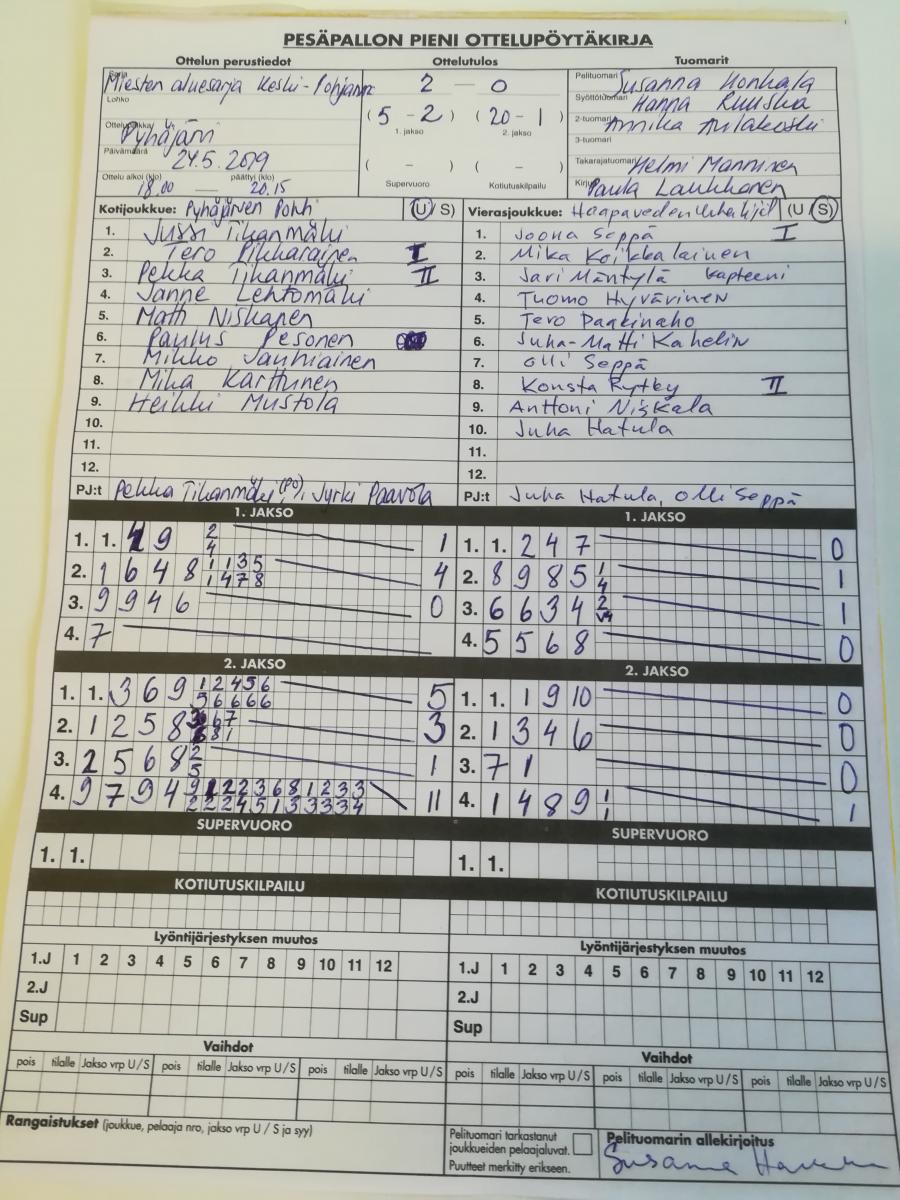 PESÄPALLON PIENI OTTELUPÖYTÄKIRJA
Ottelun perustiedot Ottelutulos Tuomarit
Sarja Miesten aluesarja Keski-Pohjanm 2 — 0 Pelituomari Susanna Honkala
Lohko (5 - 2) (20 - 1) Syöttötuomari Hanna Ruuska
1. jakso 2. jakso
Ottelupaikka Pyhäjärvi 2-tuomari Annika
Päivämäärä 24.5.2019 3-tuomari
( - ) ( - ) Takarajatuomari Helmi Manninen
Ottelu alkoi (klo) 18.00 — päättyi (klo) 20.15 Supervuoro Kotiutuskilpailu Paula Laukkanen
Kotijoukkue: Pyhäjärven Pohti (U/S) Vierasjoukkue: Haapaveden Urheilijat (U/S)
1. Jussi Tikanmäki 1. Joona Seppä I
2. Tero Pikkarainen I 2. Mika Koikkalainen
3. Pekka Tikanmäki II 3. Jari Mäntylä kapteeni
4. Janne Lehtomäki 4. Tuomo Hyvärinen
5. Matti Niskanen 5. Tero Paakinaho
6. Paulus Pesonen 6. Juha-Matti Kahelin
7. Mikko Jauhiainen 7. Olli Seppä
8. Mika Karttunen 8. Konsta Rytky II
9. Heikki Mustola 9. Anttoni Niskala
10. 10. Juha Hatula
11. 11.
12. 12.
PJ:t Pekka Tikanmäki (PO), Jyrki Paavola PJ:t Juha Hatula, Olli Seppä
1. JAKSO 1. JAKSO
1. 1. 9 2 4 1 1. 1. 2 4 7 0
2. 1 6 4 8 1 1 3 5 4 2. 8 9 8 5 1 1
1 4 7 8 4
3. 9 9 4 6 0 3. 6 6 3 4 2 1
4. 7 4. 5 5 6 8 0
2. JAKSO 2. JAKSO
1. 1. 3 6 9 1 2 4 5 6 5 1. 1. 1 9 10 0
5 6 6 6 6
2. 1 2 5 8 6 7 3 2. 1 3 4 6 0
8 1
3. 2 5 6 8 2 1 3. 7 1 0
5
4. 9 7 9 4 9 1 2 2 3 6 8 1 2 3 3 11 4. 1 4 8 9 1 1
2 2 2 4 5 1 3 3 3 3 4 1
SUPERVUORO SUPERVUORO
1. 1. 1. 1.
KOTIUTUSKILPAILU KOTIUTUSKILPAILU
Lyöntijärjestyksen muutos Lyöntijärjestyksen muutos
1.J 1 2 3 4 5 6 7 8 9 10 11 12 1.J 1 2 3 4 5 6 7 8 9 10 11 12
2.J 2.J
Sup Sup
Vaihdot Vaihdot
pois tilalle Jakso vrp U/S pois tilalle Jakso vrp U/S pois tilalle Jakso vrp U/S pois tilalle Jakso vrp U/S pois tilalle Jakso vrp U/S pois tilalle Jakso vrp U/S
Rangaistukset (joukkue, pelaaja nro, jakso vrp U / S ja syy) Pelituomari tarkastanut Pelituomarin allekirjoitus
joukkueiden pelaajaluvat.
Puutteet merkitty erikseen. Susanna